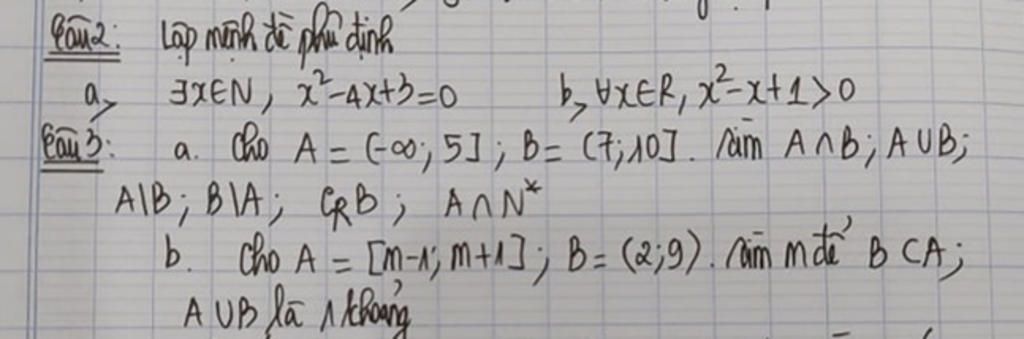 Câu 2: Lập mệnh đề phủ định
a, ∃x∈N, x²-4x+3=0 b, ∀x∈R, x²-x+1>0
Câu 3: a. Cho A = (-∞; 5]; B = (7;10]. Tìm A∩B; A∪B;
A\B; B\A; C_R B; A∩N*
b. Cho A = [m-1; m+1]; B = (2;9). Tìm m để B⊂A;
A∪B là 1 khoảng